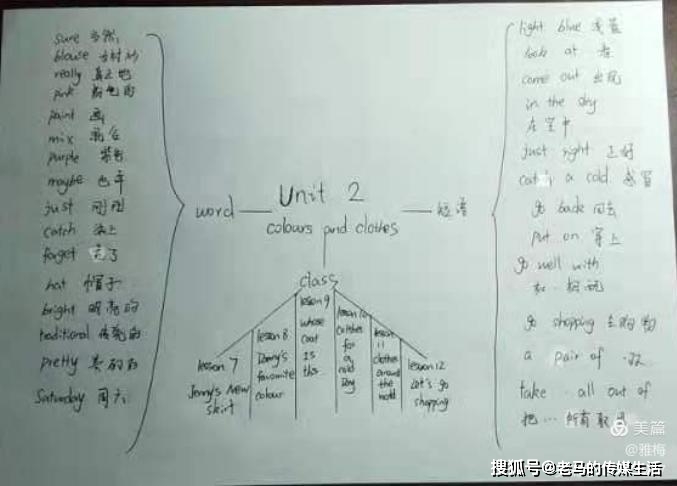 sure 当然
blouse 女衬衫
really 真正地
pink 粉色的
paint 画
mix 混合
purple 紫色
maybe 也许
just 刚刚
catch 染上
forget 忘了
hat 帽子
bright 明亮的
traditional 传统的
pretty 美丽的
Saturday 周六
word
Unit 2
colours and clothes
短语
class
lesson 7
Jenny's New
skirt
lesson 8
Danny's
favourite
colour
lesson 9
whose
coat
Is
this
lesson 10
clothes
for
a
cold
Day
lesson
11
clothes
around
the
world
lesson 12
Let's go
shopping
light blue 浅蓝
look at 看
come out 出现
in the sky
在空中
just right 正好
catch a cold 感冒
go back 回去
put on 穿上
go well with
和…相配
go shopping 去购物
a pair of 一双
take … all out of
把…所有取出
美篇
@雅梅
搜狐号@老马的传媒生活